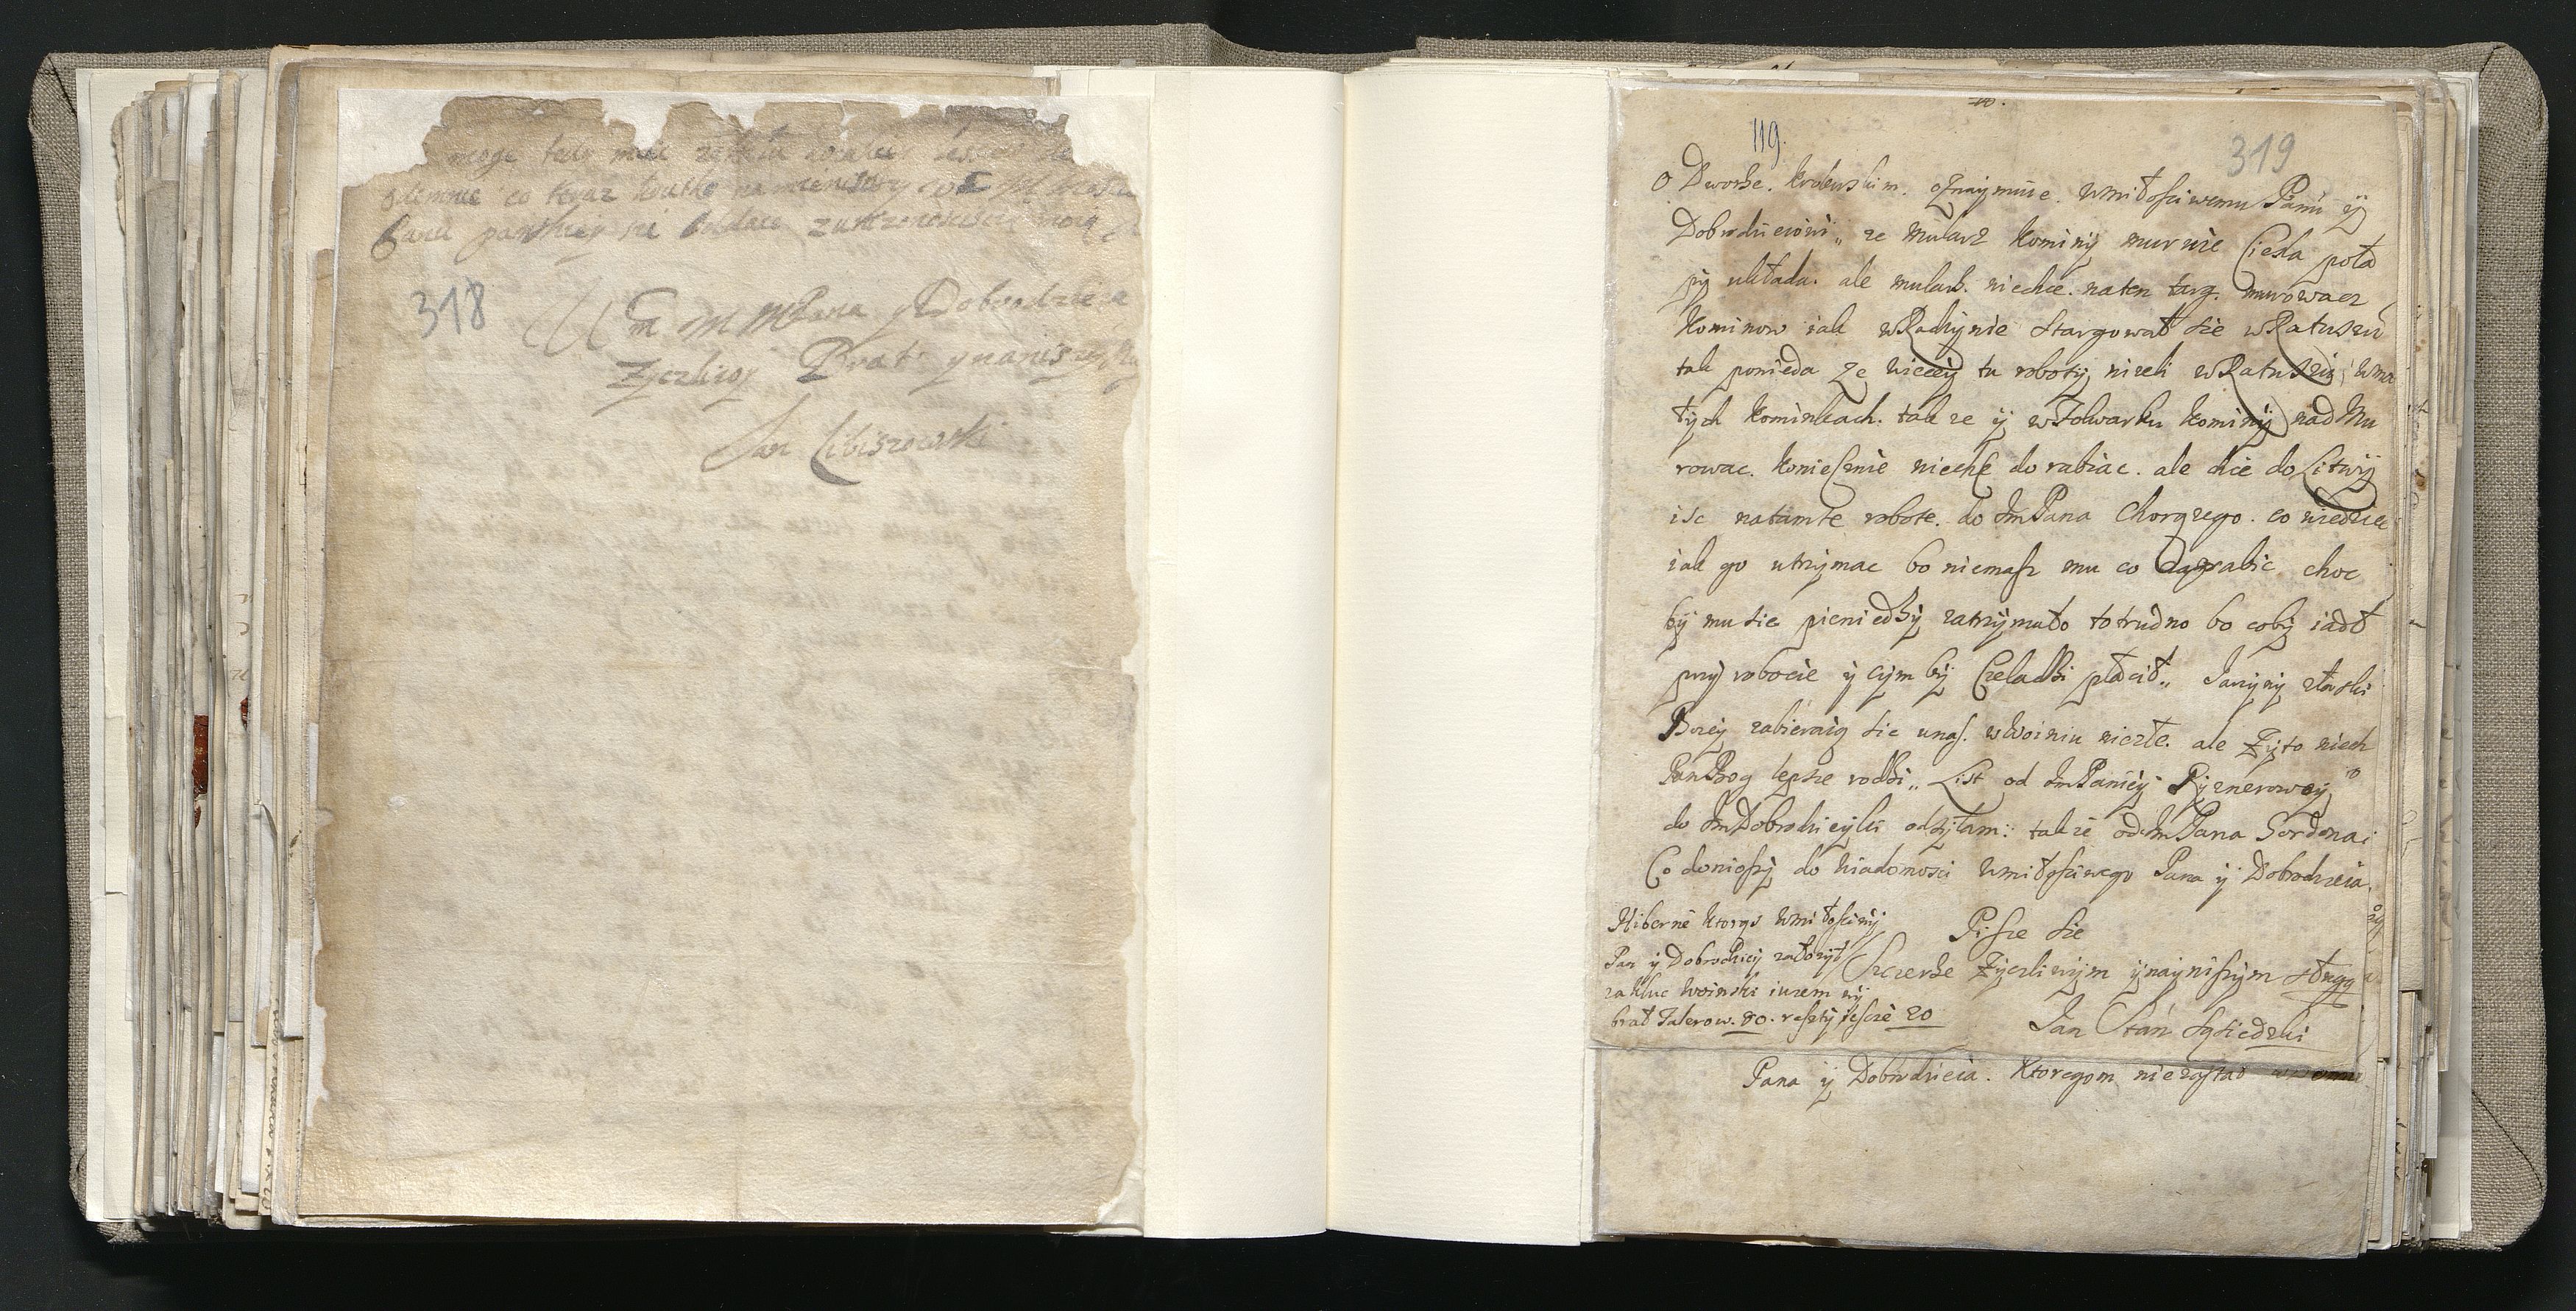 moge tedy miec
odemnie co teraz
Łasce panskiey sie oddaie z unizonosciu moią
318
Wm M MPana y Dobrodzieia
Zyczliwy Brat y naniszszy
Jan Libiszowski
119.
319
O Dworze. krolewskim. oznaymuie. Wmiłosciwemu Panu ÿ
Dobrodzieiowi,, ze Mularz kominÿ muruie Ciesla poła
pÿ układa. ale mularz. niechce. naten targ. murowacz
kominow iak wRadzÿnie stargował sie wRatuszu
tak powieda ze wiecey tu robotÿ nizeli wRatuszu, wma
łÿch kominkach. tak ze ÿ wFolwarku kominÿ nad Mu
rowac. koniecznie niechce dorabiac. ale chce do Litwÿ
isc natamte robote. do JmPana Chorązego. co niedziec
iak go utrzÿmac bo niemasz mu co Dagrabic choc
bÿ mu sie pieniedzÿ zatrzÿmało to trudno bo cobÿ iadł
przÿ robocie ÿ czÿm bÿ Czeladzi płacił,, Jarzÿnÿ z łaski
Bozeÿ zabieraią sie unas. wWoiniu niezłe. ale Zÿto niech
PanBog lepsze rodzi,, List od JmPanieÿ Rÿznerowey
do JmDobrodzieÿki odsÿłam: takze odJmPana Gordona:
Co donioszÿ do wiadomosci Wmiłosciwego Pana ÿ Dobrodzieia.
Hiberne ktorą Wmiłosciwÿ
Pan ÿ Dobrodzieÿ załozÿł
za kluc Woinski iuzem wÿ
brał Talerow. 80. resztÿ iescze 20
Pisze sie
Szczerze Zÿczliwÿm ÿnaÿniszÿm sługą
Jan Stan Sąsiedzki
Pana ÿ Dobrodzieia. Ktoregom niezastał wdomu